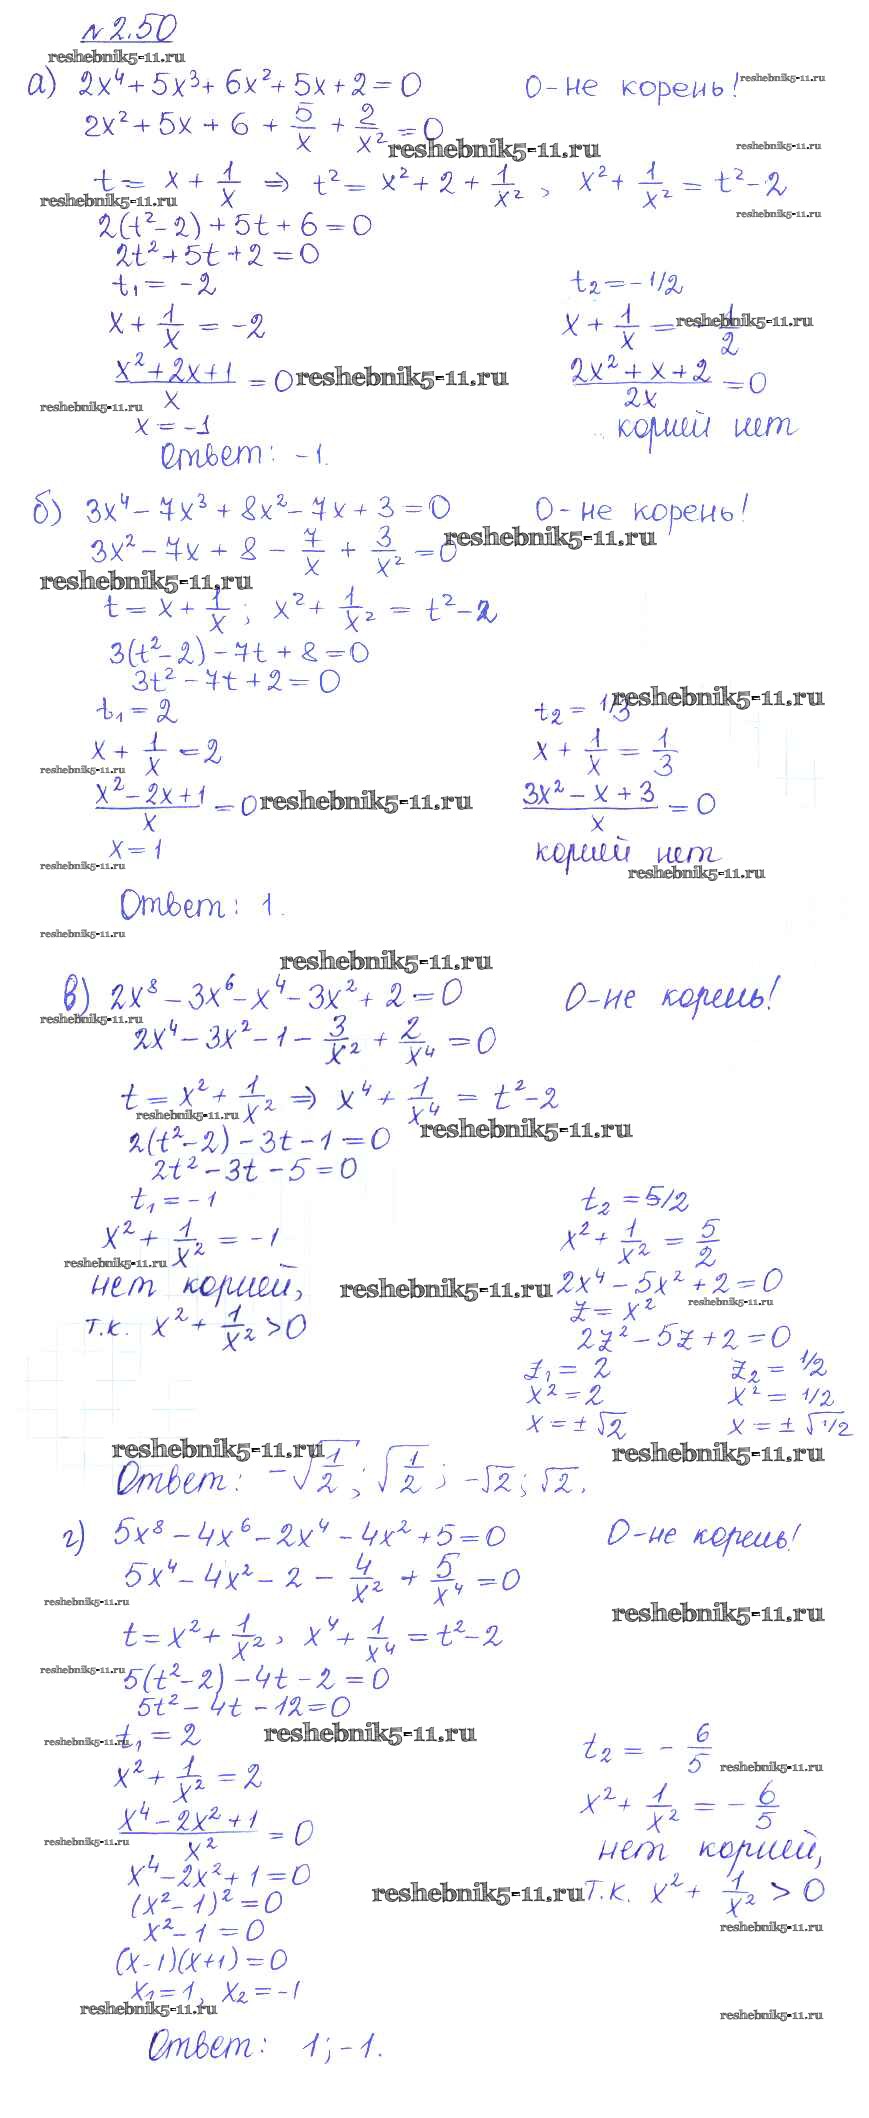 №2.50
reshebnik5-11.ru
а) 2x⁴ + 5x³ + 6x² + 5x + 2 = 0 0 - не корень! reshebnik5-11.ru
2x² + 5x + 6 + 5/x + 2/x² = 0
reshebnik5-11.ru reshebnik5-11.ru
t = x + 1/x ⇒ t² = x² + 2 + 1/x², x² + 1/x² = t² - 2
reshebnik5-11.ru reshebnik5-11.ru
2(t² - 2) + 5t + 6 = 0
2t² + 5t + 2 = 0
t₁ = -2 t₂ = -1/2
x + 1/x = -2 x + 1/x = -1/2 reshebnik5-11.ru
(x² + 2x + 1)/x = 0 reshebnik5-11.ru (2x² + x + 2)/2x = 0
reshebnik5-11.ru
x = -1 корней нет
Ответ: -1.
б) 3x⁴ - 7x³ + 8x² - 7x + 3 = 0 0 - не корень!
3x² - 7x + 8 - 7/x + 3/x² = 0 reshebnik5-11.ru
reshebnik5-11.ru
t = x + 1/x; x² + 1/x² = t² - 2
3(t² - 2) - 7t + 8 = 0
3t² - 7t + 2 = 0
t₁ = 2 t₂ = 1/3 reshebnik5-11.ru
x + 1/x = 2 x + 1/x = 1/3
reshebnik5-11.ru
(x² - 2x + 1)/x = 0 reshebnik5-11.ru (3x² - x + 3)/x = 0
x = 1 корней нет
reshebnik5-11.ru reshebnik5-11.ru
Ответ: 1.
reshebnik5-11.ru
reshebnik5-11.ru
в) 2x⁸ - 3x⁶ - x⁴ - 3x² + 2 = 0 0 - не корень!
reshebnik5-11.ru
2x⁴ - 3x² - 1 - 3/x² + 2/x⁴ = 0
t = x² + 1/x² ⇒ x⁴ + 1/x⁴ = t² - 2
reshebnik5-11.ru reshebnik5-11.ru
2(t² - 2) - 3t - 1 = 0
2t² - 3t - 5 = 0
t₁ = -1 t₂ = 5/2
x² + 1/x² = -1 x² + 1/x² = 5/2
reshebnik5-11.ru
нет корней, reshebnik5-11.ru 2x⁴ - 5x² + 2 = 0
т.к. x² + 1/x² > 0 z = x² reshebnik5-11.ru
2z² - 5z + 2 = 0
z₁ = 2 z₂ = 1/2
x² = 2 x² = 1/2
x = ±√2 x = ±√1/2
reshebnik5-11.ru reshebnik5-11.ru
Ответ: -√1/2; √1/2; -√2; √2.
г) 5x⁸ - 4x⁶ - 2x⁴ - 4x² + 5 = 0 0 - не корень!
5x⁴ - 4x² - 2 - 4/x² + 5/x⁴ = 0
reshebnik5-11.ru reshebnik5-11.ru
t = x² + 1/x², x⁴ + 1/x⁴ = t² - 2
reshebnik5-11.ru 5(t² - 2) - 4t - 2 = 0
5t² - 4t - 12 = 0
reshebnik5-11.ru t₁ = 2 reshebnik5-11.ru t₂ = -6/5
reshebnik5-11.ru
x² + 1/x² = 2 x² + 1/x² = -6/5
(x⁴ - 2x² + 1)/x² = 0 нет корней,
reshebnik5-11.ru
x⁴ - 2x² + 1 = 0 reshebnik5-11.ru т.к. x² + 1/x² > 0
(x² - 1)² = 0 reshebnik5-11.ru
x² - 1 = 0
(x - 1)(x + 1) = 0
x₁ = 1, x₂ = -1
reshebnik5-11.ru reshebnik5-11.ru
Ответ: 1; -1.